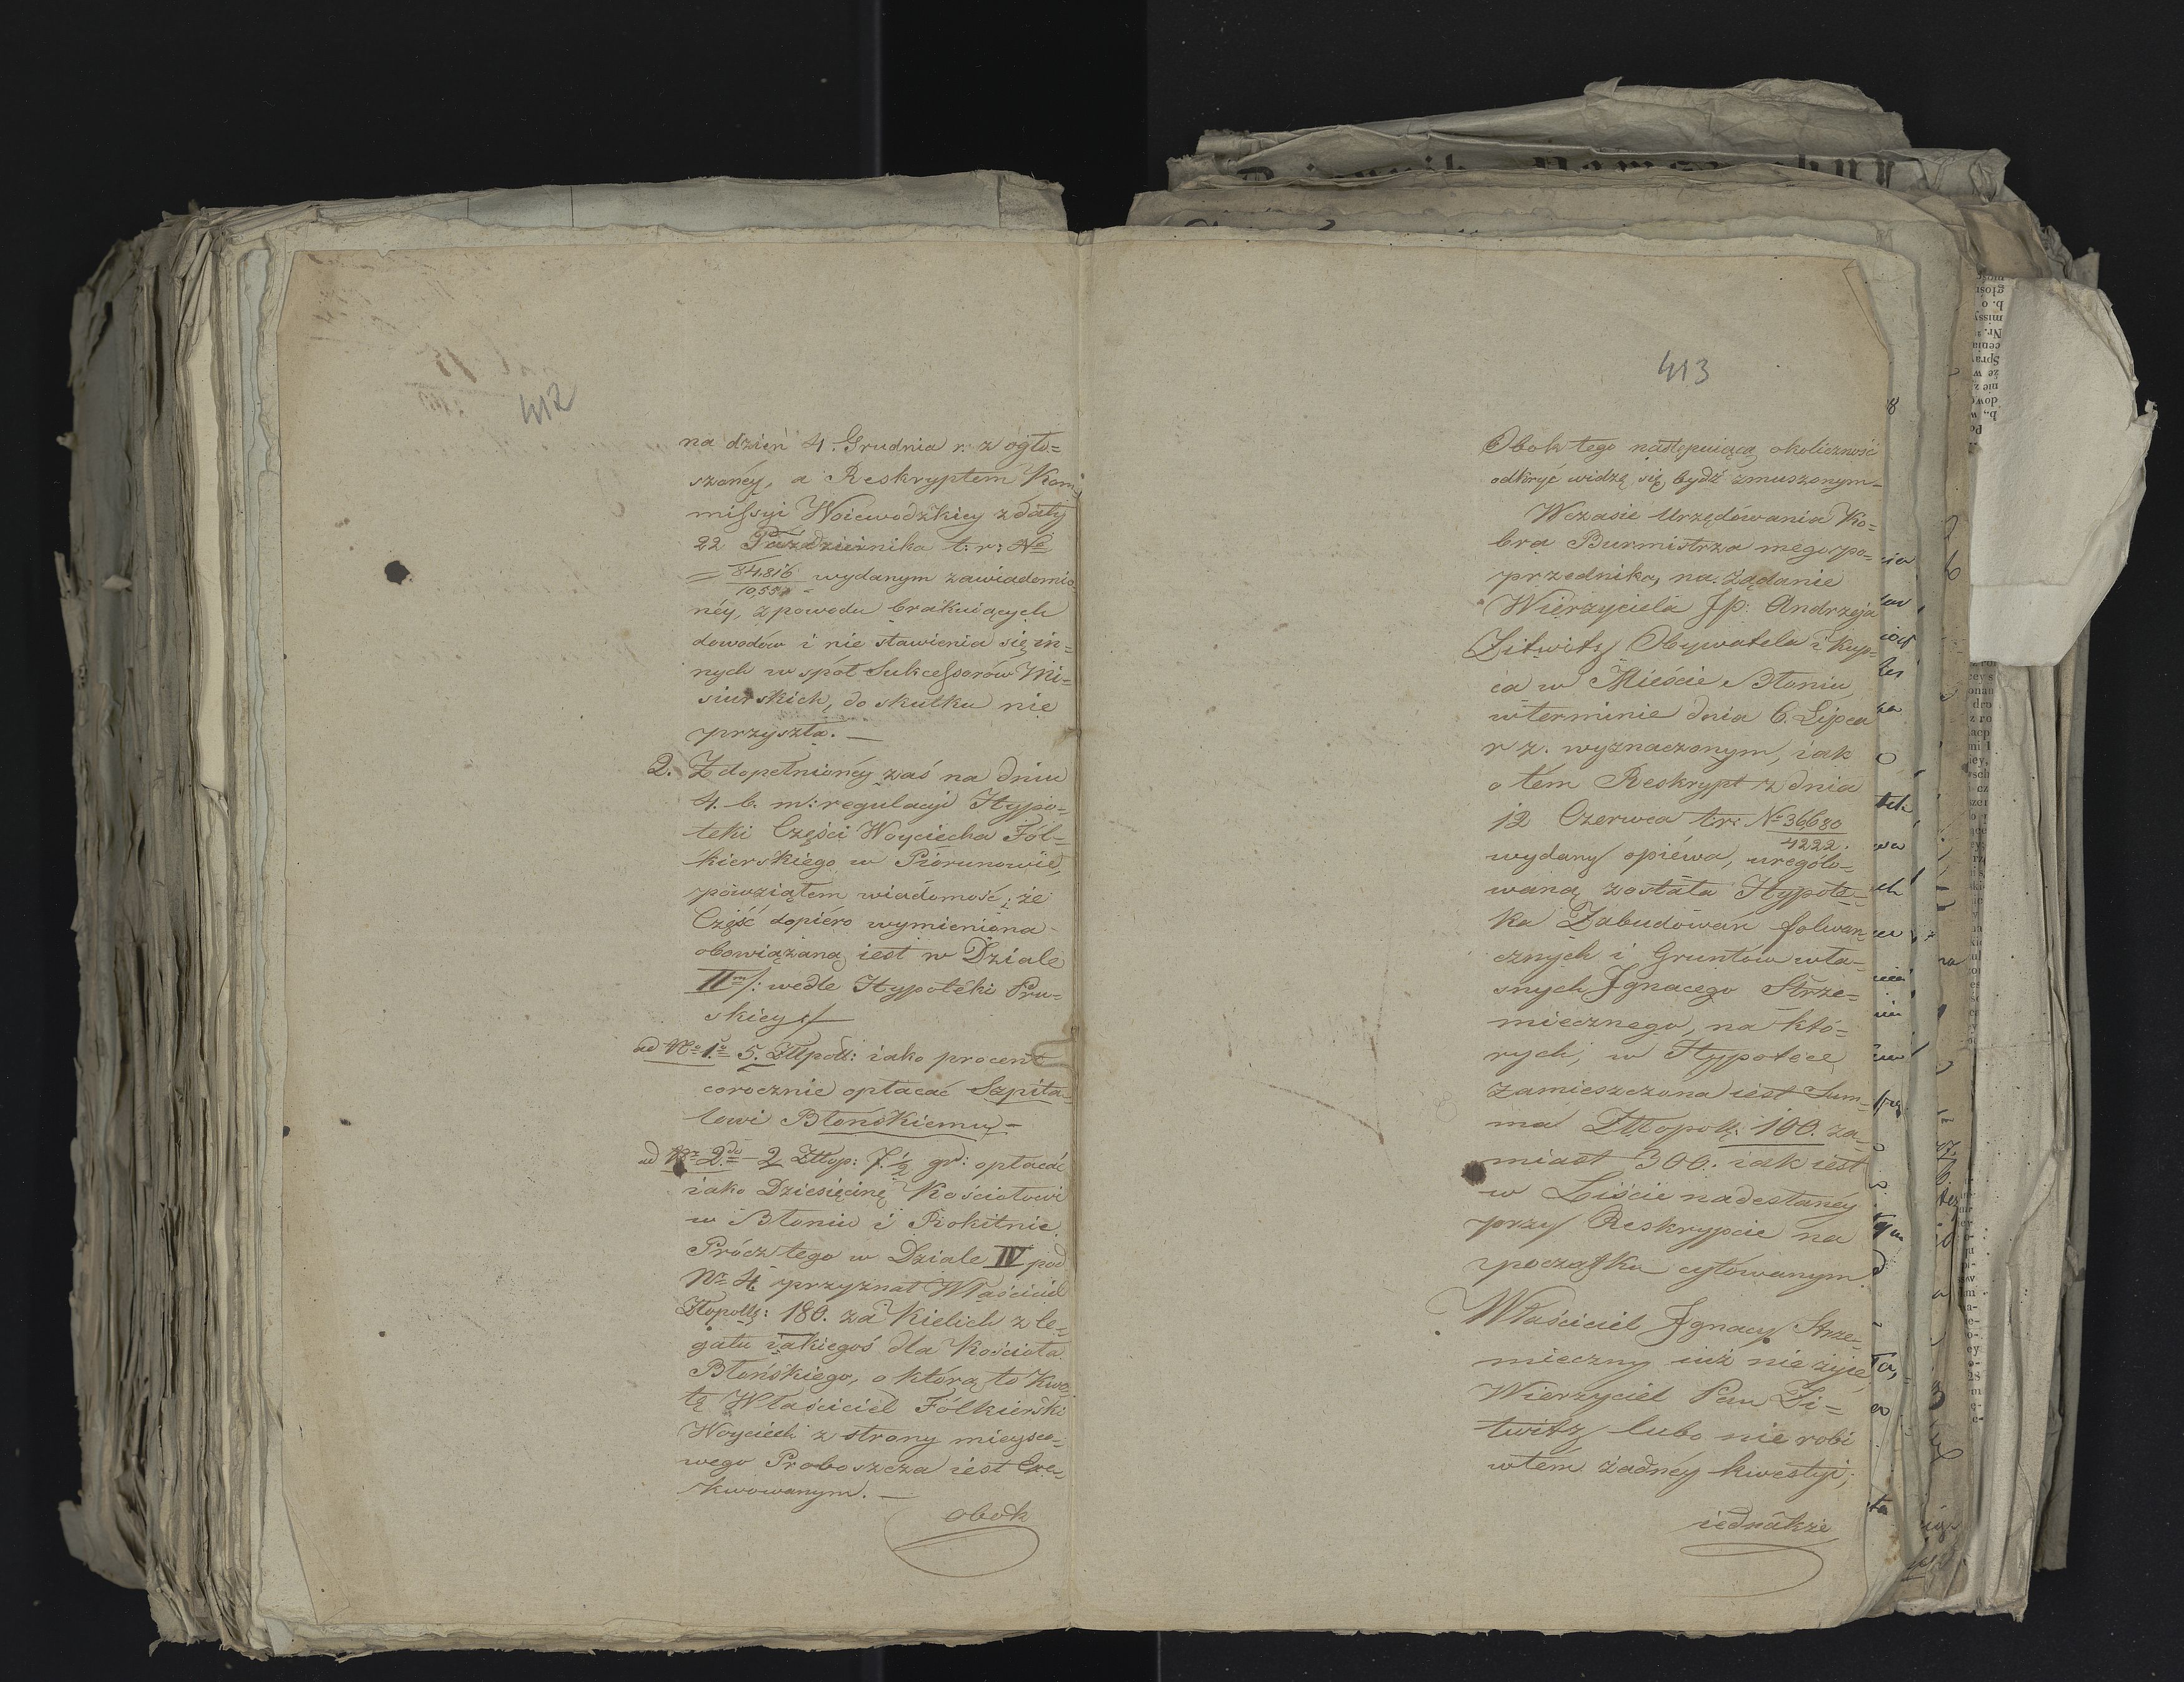 412
na dzień 4. Grudnia r. z ogło=
szonéy, a Reskryptem Kom=
missyi Woiewodzkiey z daty
22 Października t: r: No
84,816
wydanym zawiadomio
néy, z powodu brakuiących
dowodów i nie stawienia się in=
nych w spół Sukcessorów Mi=
siurskich, do skutku nie
przyszła. —
2. Z dopełnionéy zaś na dniu
4. b. m: regulacyi Hypo=
teki Części Woyciecha Fól=
kierskiego w Piorunowie,
powziąłem wiadomość, że
Część dopiéro wymieniona
obowiązaną iest w Dziale
II /: wedle Hypotéki Pru=
skiey :/
ad No 1o 5. Złlpoll: iako procent
corocznie opłacać Szpita=
lowi Błońskiemu —
ad Nr 2do — 2 Złlop: 7. ½ gr: opłacać
iako Dziesięcinę Kościołowi
w Błoniu i Rokitnie
Prócz tego w Dziale IV pod
Nr 4 przyznał Właściciel
180. za Kielich z le=
gatu iakiegoś dla Kościoła
Błońskiego, o którą to Kwo=
tę Właściciel Fólkierski
Woyciech z strony mieysco=
wego Proboszcza iest Exe=
kwowanym. —
obok
413
Obok tego następuiącą okoliczność
odkryć widzę się bydź zmuszonym —
W czasie Urzędówania Ko=
bra Burmistrza mego po=
przednika, na żądanie
Wierzyciela Jp: Andrzeja
Litwitz Obywatela i Kup=
ca w Mieście Błoniu
w terminie dnia 6. Lipca
r z. wyznaczonym, iak
o tém Reskrypt z dnia
12 Czerwca t r: No 36,680
4222.
wydany opiéwa, urególo=
waną została Hypote=
ka Zabudówań folwar=
cznych i Gruntów wła=
snych Ignacego Strze=
miecznego, na któ=
rych, w Hypotece
zamieszczona iest Sum=
ma Złlopoll: 100. za=
miast 300. iak iest
w Liście nadesłanéy
przy Reskrypcie na
początku cytówanym.
Właściciel Ignacy Strze=
mieczny iuż nie żyie,
Wierzyciel Pan Li=
twitz lubo nie robi
w tém żadnéy kwestyi,
iednakże